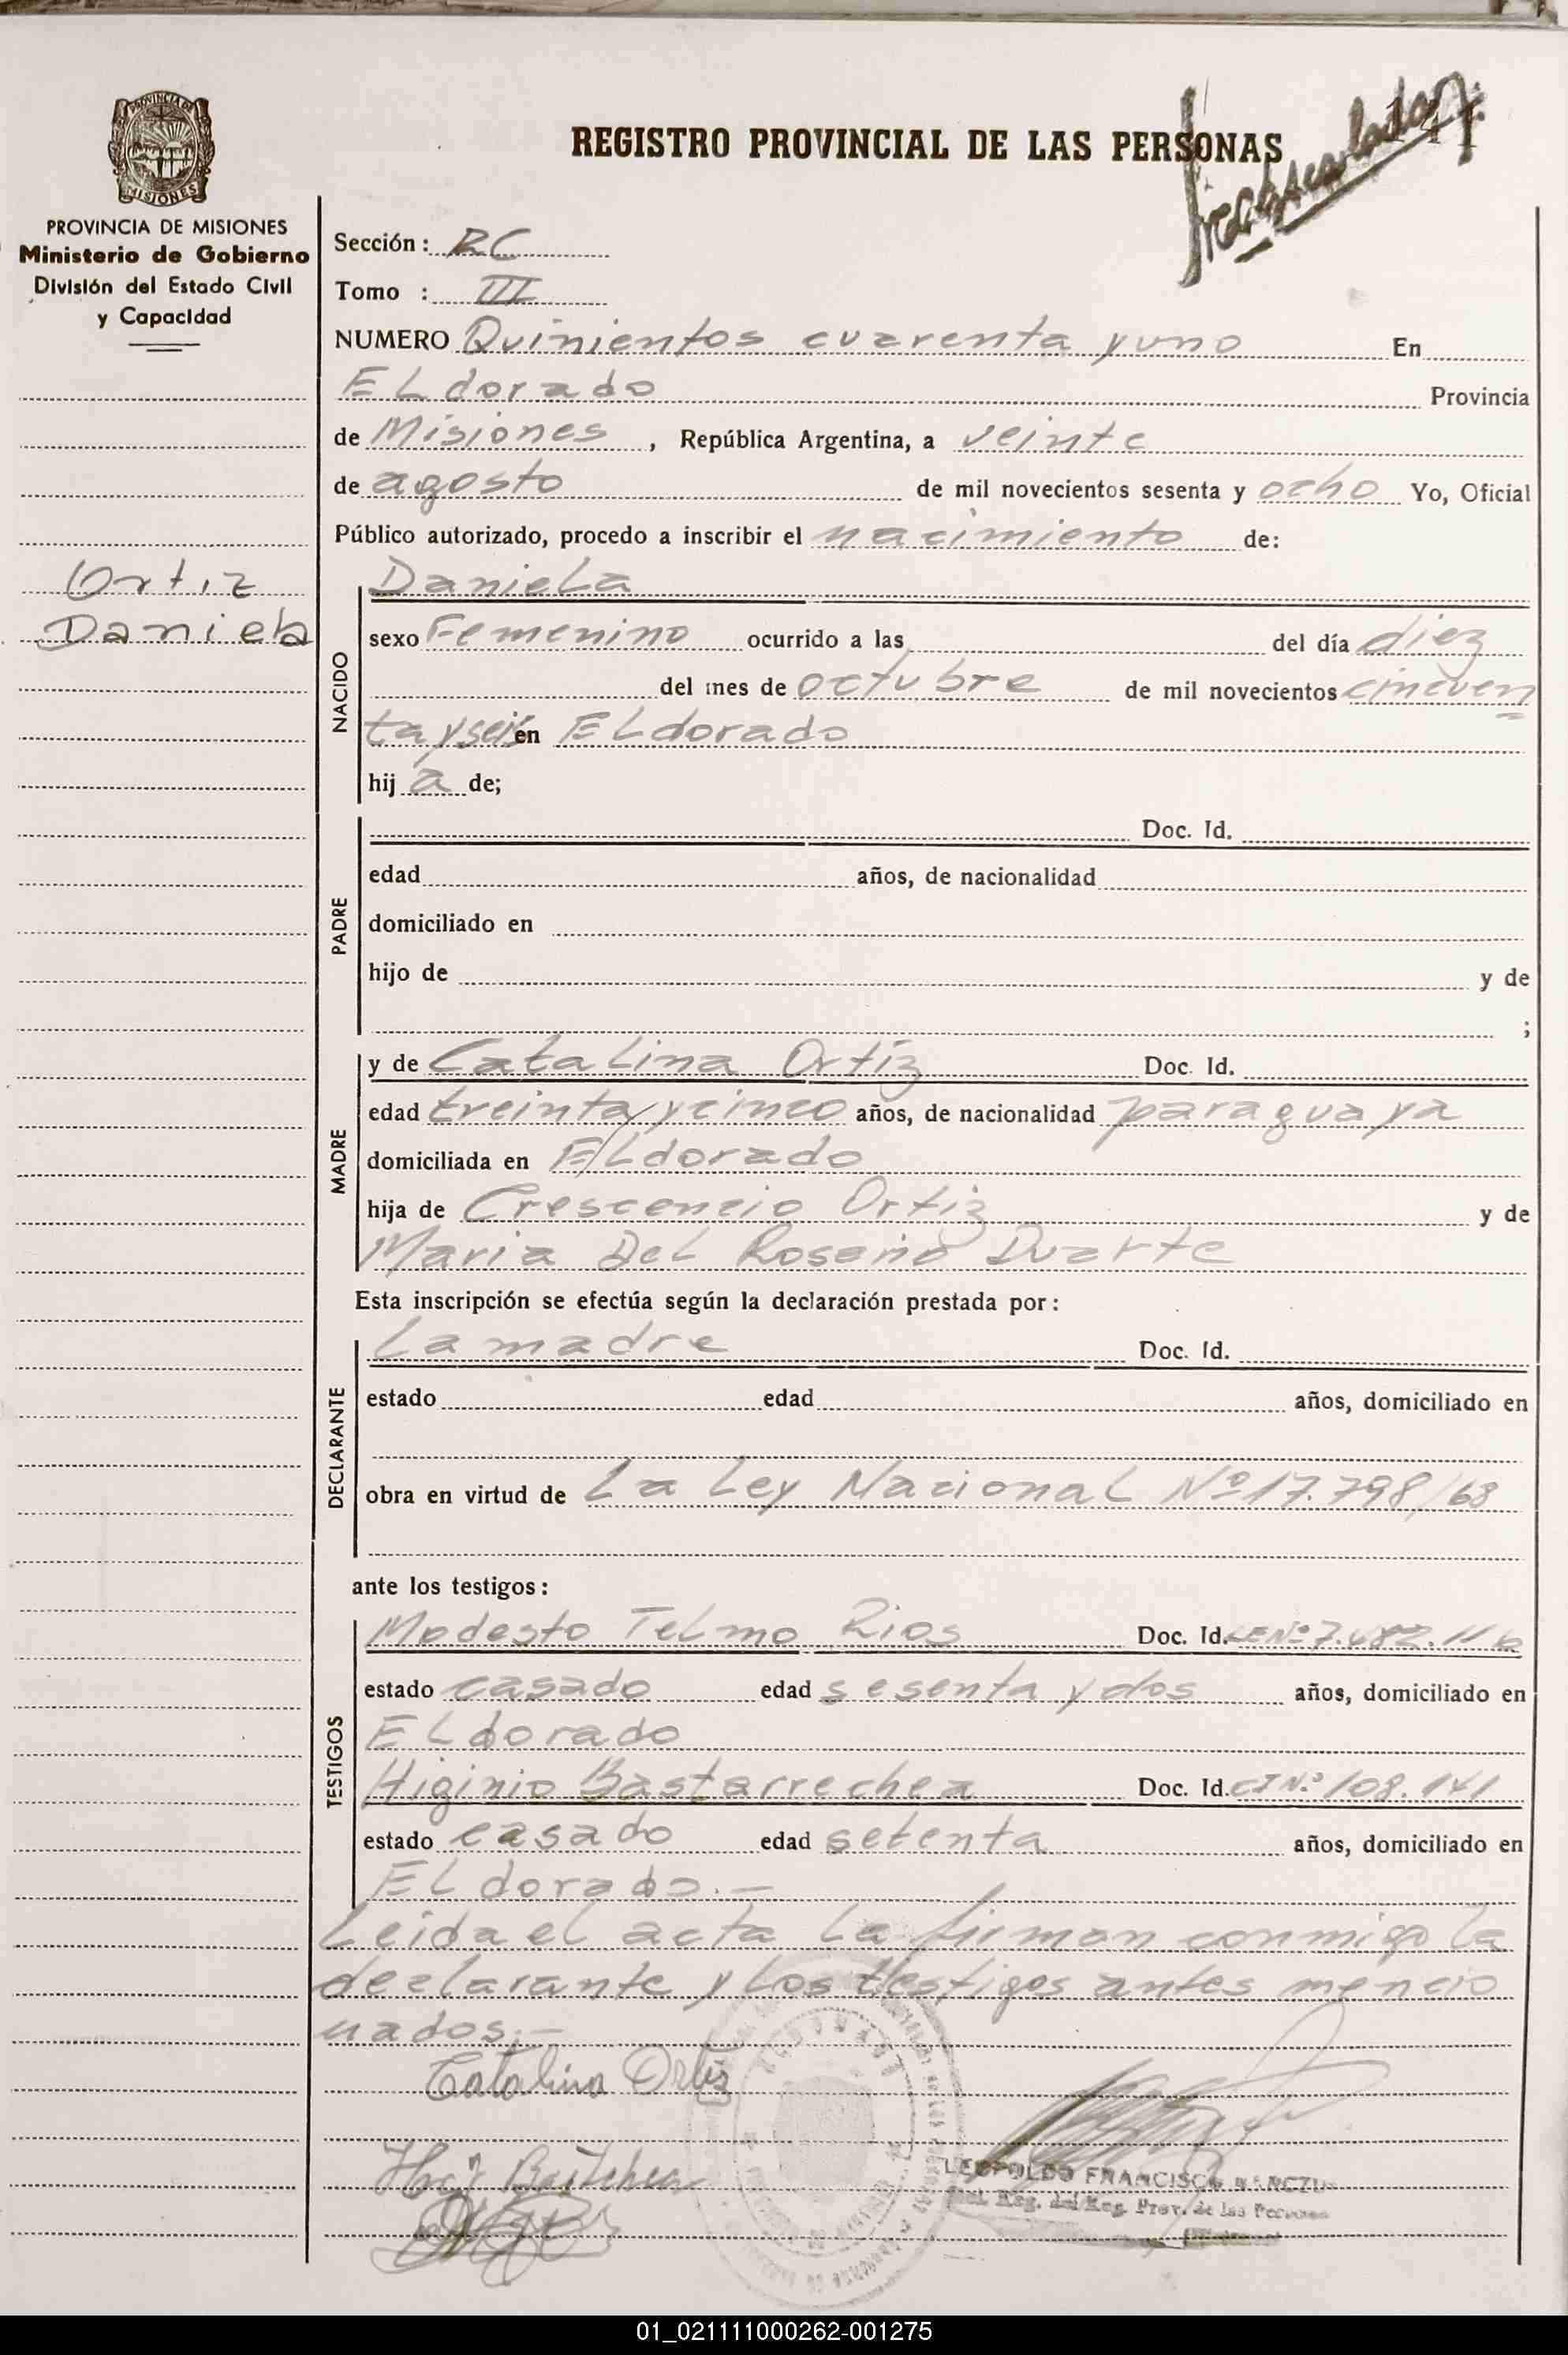 REGISTRO PROVINCIAL DE LAS PERSONAS
PROVINCIA DE MISIONES
Ministerio de Gobierno
División del Estado Civil
y Capacidad
Sección: RC
Tomo : III
NUMERO Quinientos cuarenta y uno En
ELdorado Provincia
de Misiones, República Argentina, a veinte
de agosto de mil novecientos sesenta y ocho Yo, Oficial
Público autorizado, procedo a inscribir el nacimiento de:
Ortiz
Daniela
NACIDO
Daniela
sexo Femenino ocurrido a las del día diez
del mes de octubre de mil novecientos cincuen
ta y seis en ELdorado
hij a de;
PADRE
Doc. Id.
edad años, de nacionalidad
domiciliado en
hijo de y de
;
MADRE
y de Catalina Ortiz Doc. Id.
edad treinta y cinco años, de nacionalidad paraguaya
domiciliada en ELdorado
hija de Crescencio Ortiz y de
Maria Del Rosario Duarte
Esta inscripción se efectúa según la declaración prestada por:
DECLARANTE
La madre Doc. Id.
estado edad años, domiciliado en
obra en virtud de La Ley Nacional Nº 17.798/68
ante los testigos:
TESTIGOS
Modesto Telmo Rios Doc. Id. LE Nº
estado casado edad sesenta y dos años, domiciliado en
ELdorado
Higinio Bastarrechea Doc. Id. CI Nº 108.141
estado casado edad setenta años, domiciliado en
ELdorado.-
Leida el acta la firman conmigo la
declarante y los testigos antes mencio
nados.-
Catalina Ortiz
LEOPOLDO FRANCISCO
Reg. del Reg. Prov. de las Personas
01_021111000262-001275